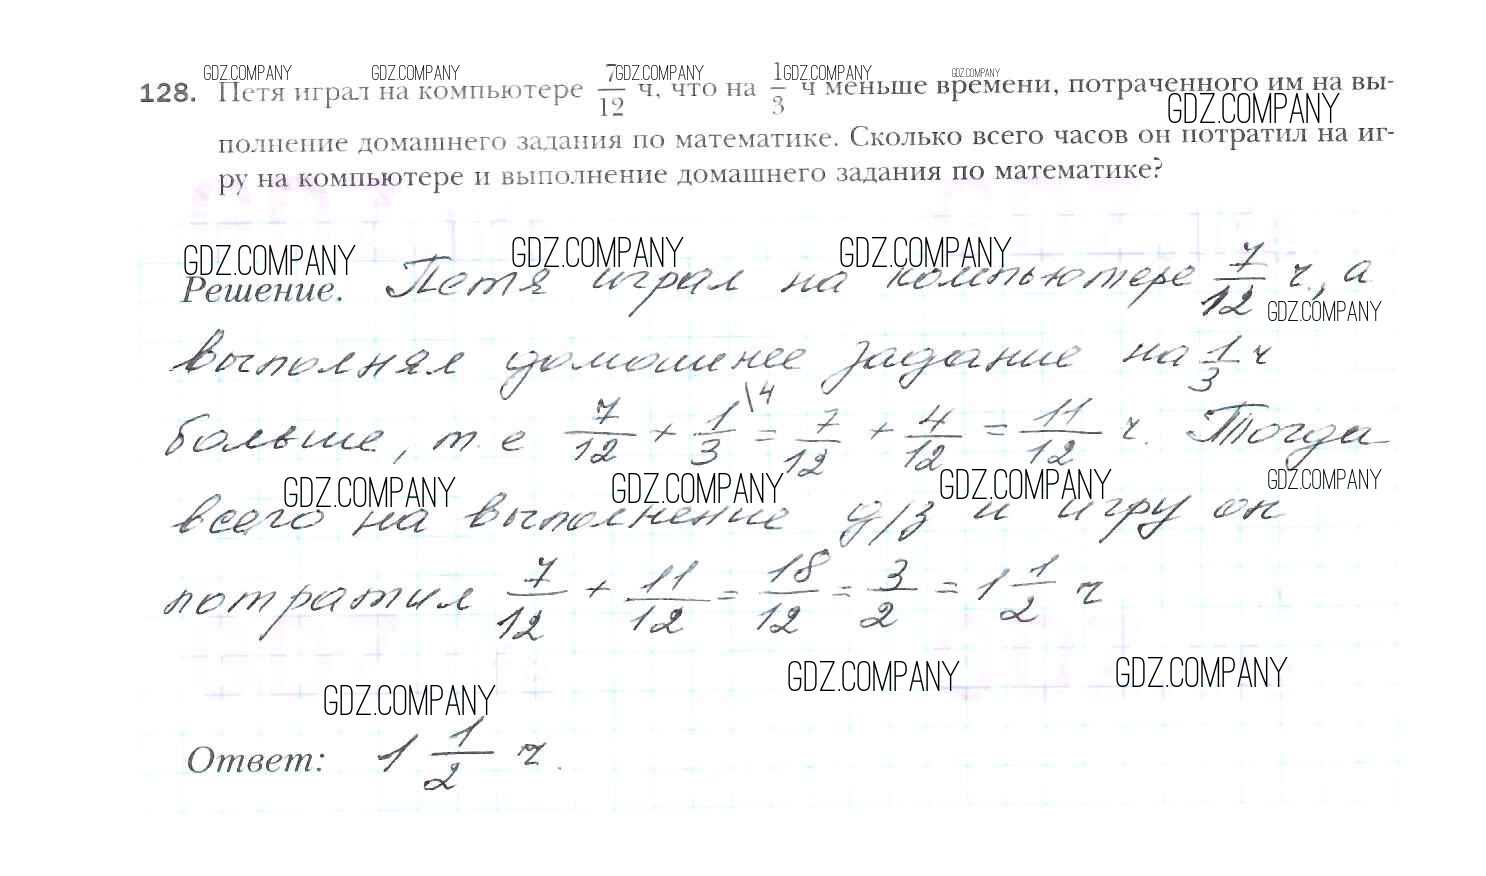 GDZ.COMPANY GDZ.COMPANY GDZ.COMPANY GDZ.COMPANY GDZ.COMPANY
128. Петя играл на компьютере 7/12 ч, что на 1/3 ч меньше времени, потраченного им на вы-
GDZ.COMPANY
полнение домашнего задания по математике. Сколько всего часов он потратил на иг-
ру на компьютере и выполнение домашнего задания по математике?
GDZ.COMPANY GDZ.COMPANY GDZ.COMPANY
Решение. Петя играл на компьютере 7/12 ч., а
GDZ.COMPANY
выполнял домошнее задание на 1/3 ч
больше, т. е 7/12 + 1/3 \4 = 7/12 + 4/12 = 11/12 ч. Тогда
GDZ.COMPANY GDZ.COMPANY GDZ.COMPANY GDZ.COMPANY
всего на выполнение д/з и игру он
потратил 7/12 + 11/12 = 18/12 = 3/2 = 1 1/2 ч
GDZ.COMPANY GDZ.COMPANY GDZ.COMPANY
Ответ: 1 1/2 ч.